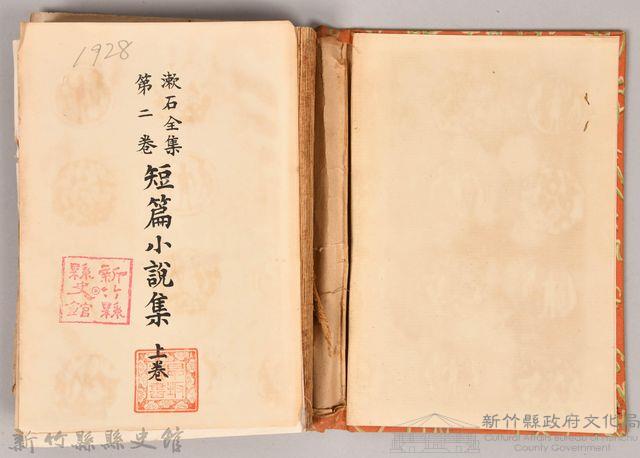 1928
漱石全集
第二卷
短篇小說集 上卷
新竹縣
縣史館
新竹縣縣史館
新竹縣政府文化局
Cultural Affairs Bureau of Hsinchu
County Government